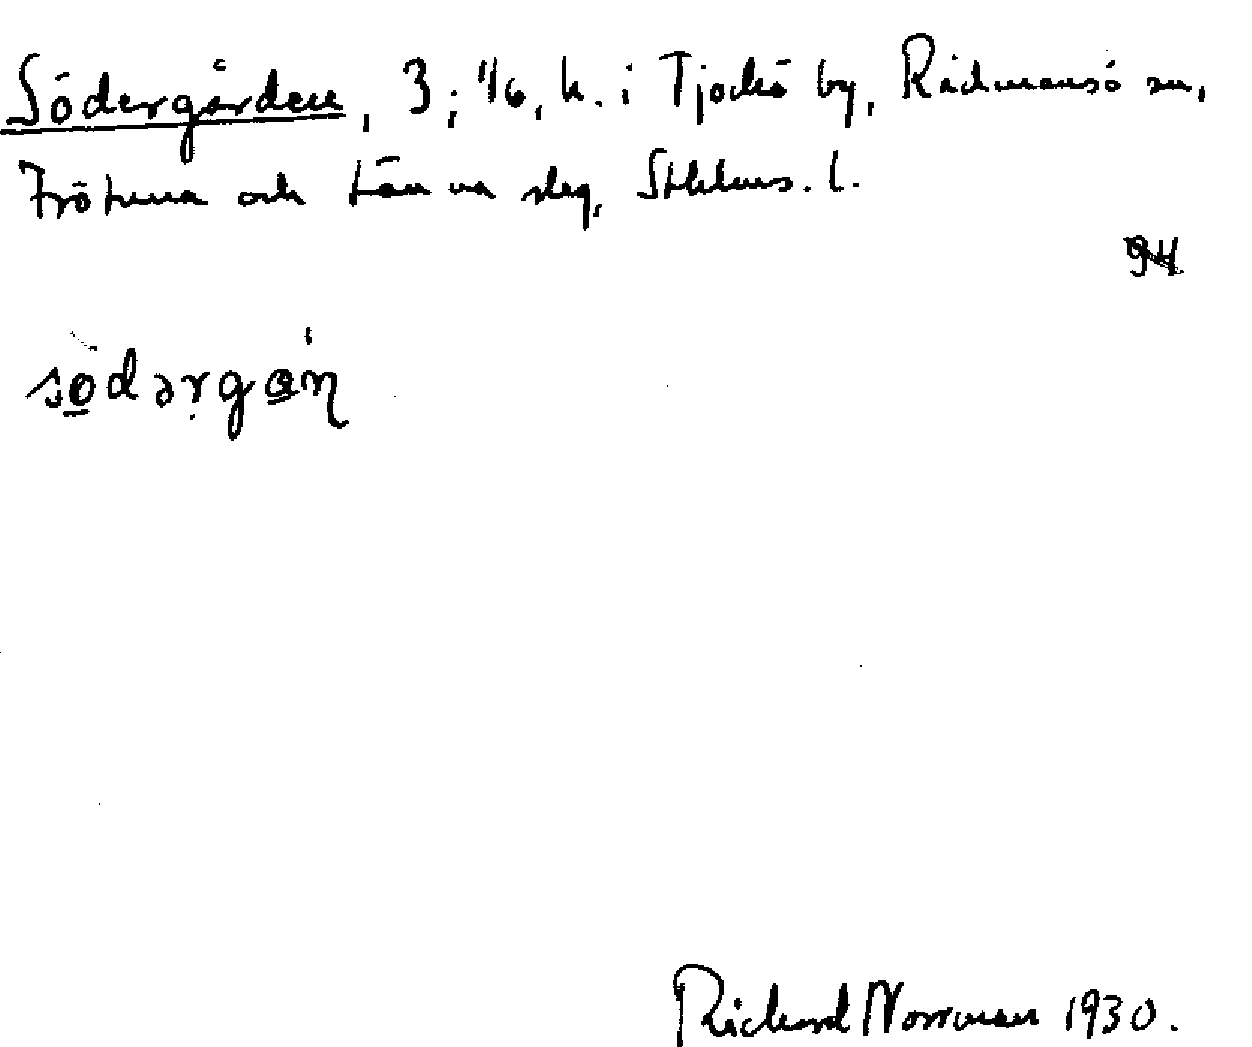 Södergården, 3; 1/6, h. i Tjockö by, Rådmansö sn,
Frötuna och Länna slg, Sthlms. l.
södərgɑ̀ṇ
Richard Norrman 1930.